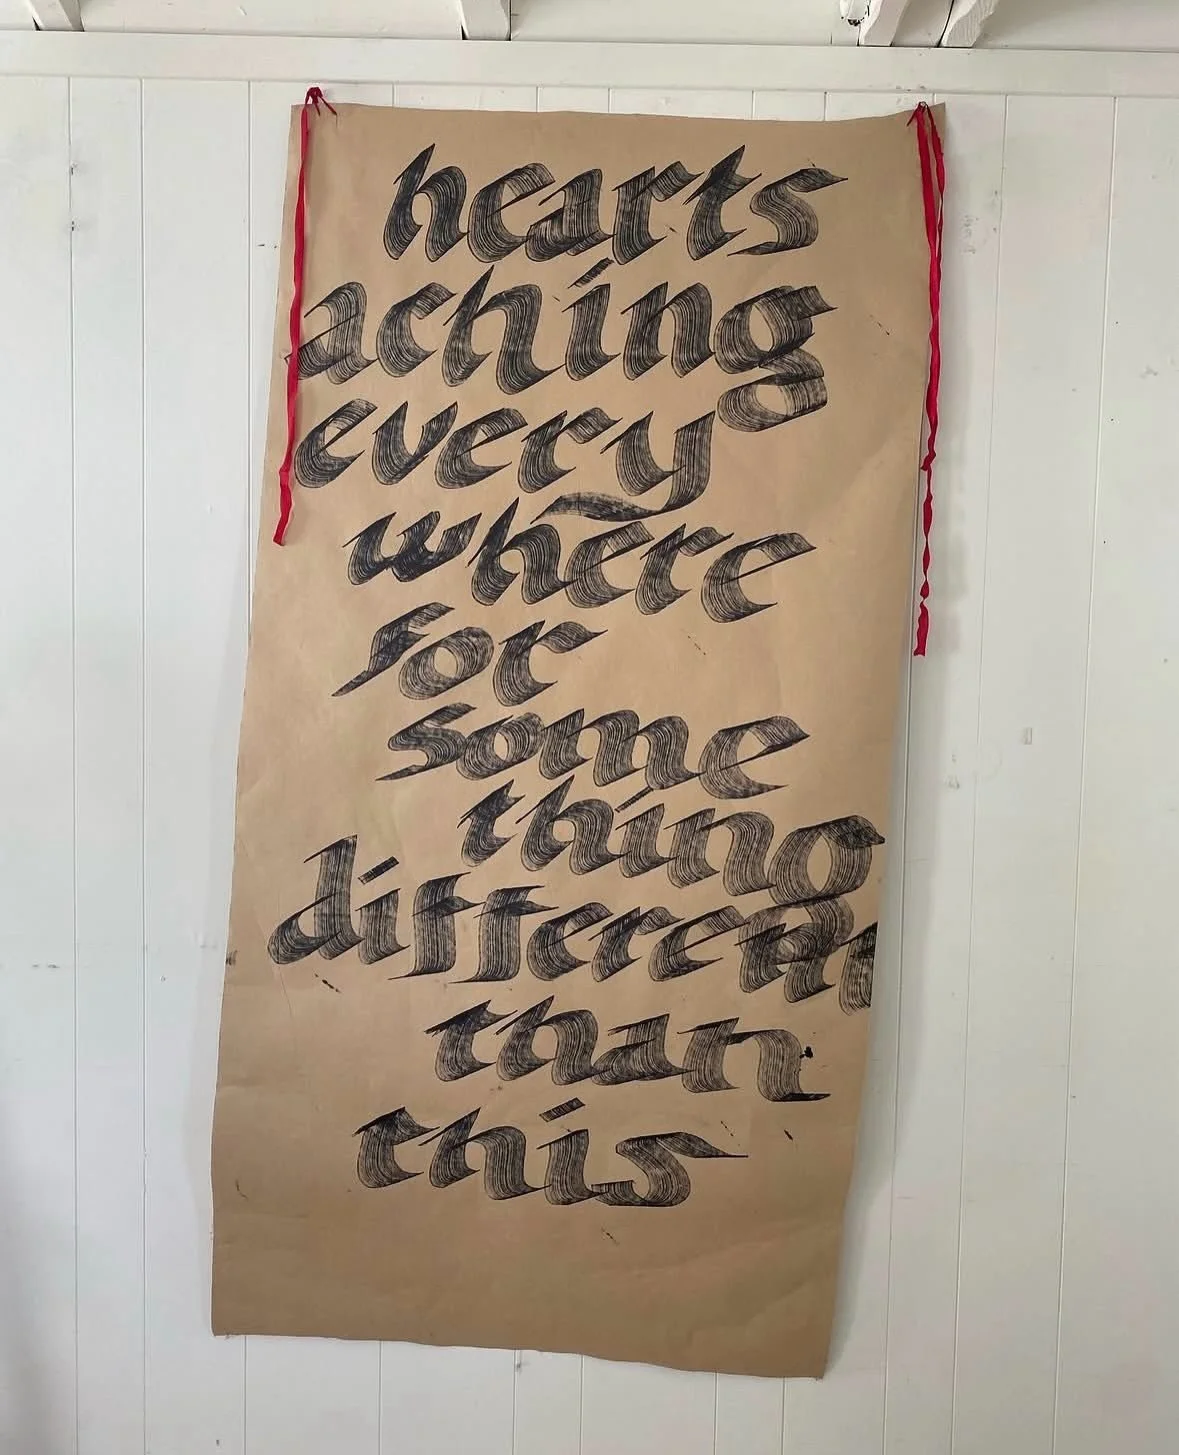 hearts
aching
every
where
for
some
thing
different
than
this